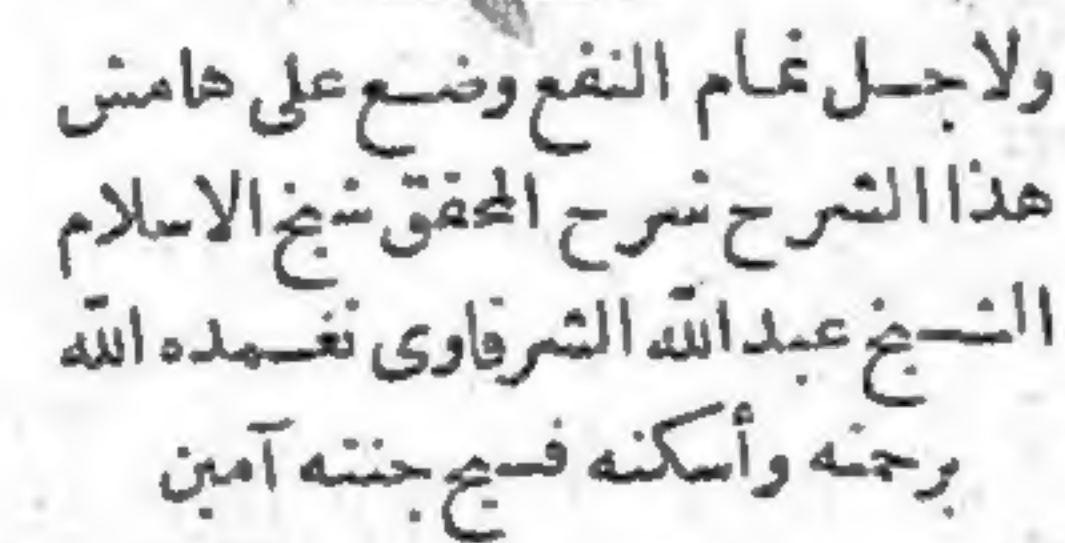 ولاجل تمام النفع وضع على هامش
هذا الشرح شرح المحقق شيخ الاسلام
الشيخ عبد الله الشرقاوى تغمده الله
برحمته وأسكنه فسيح جنته آمين